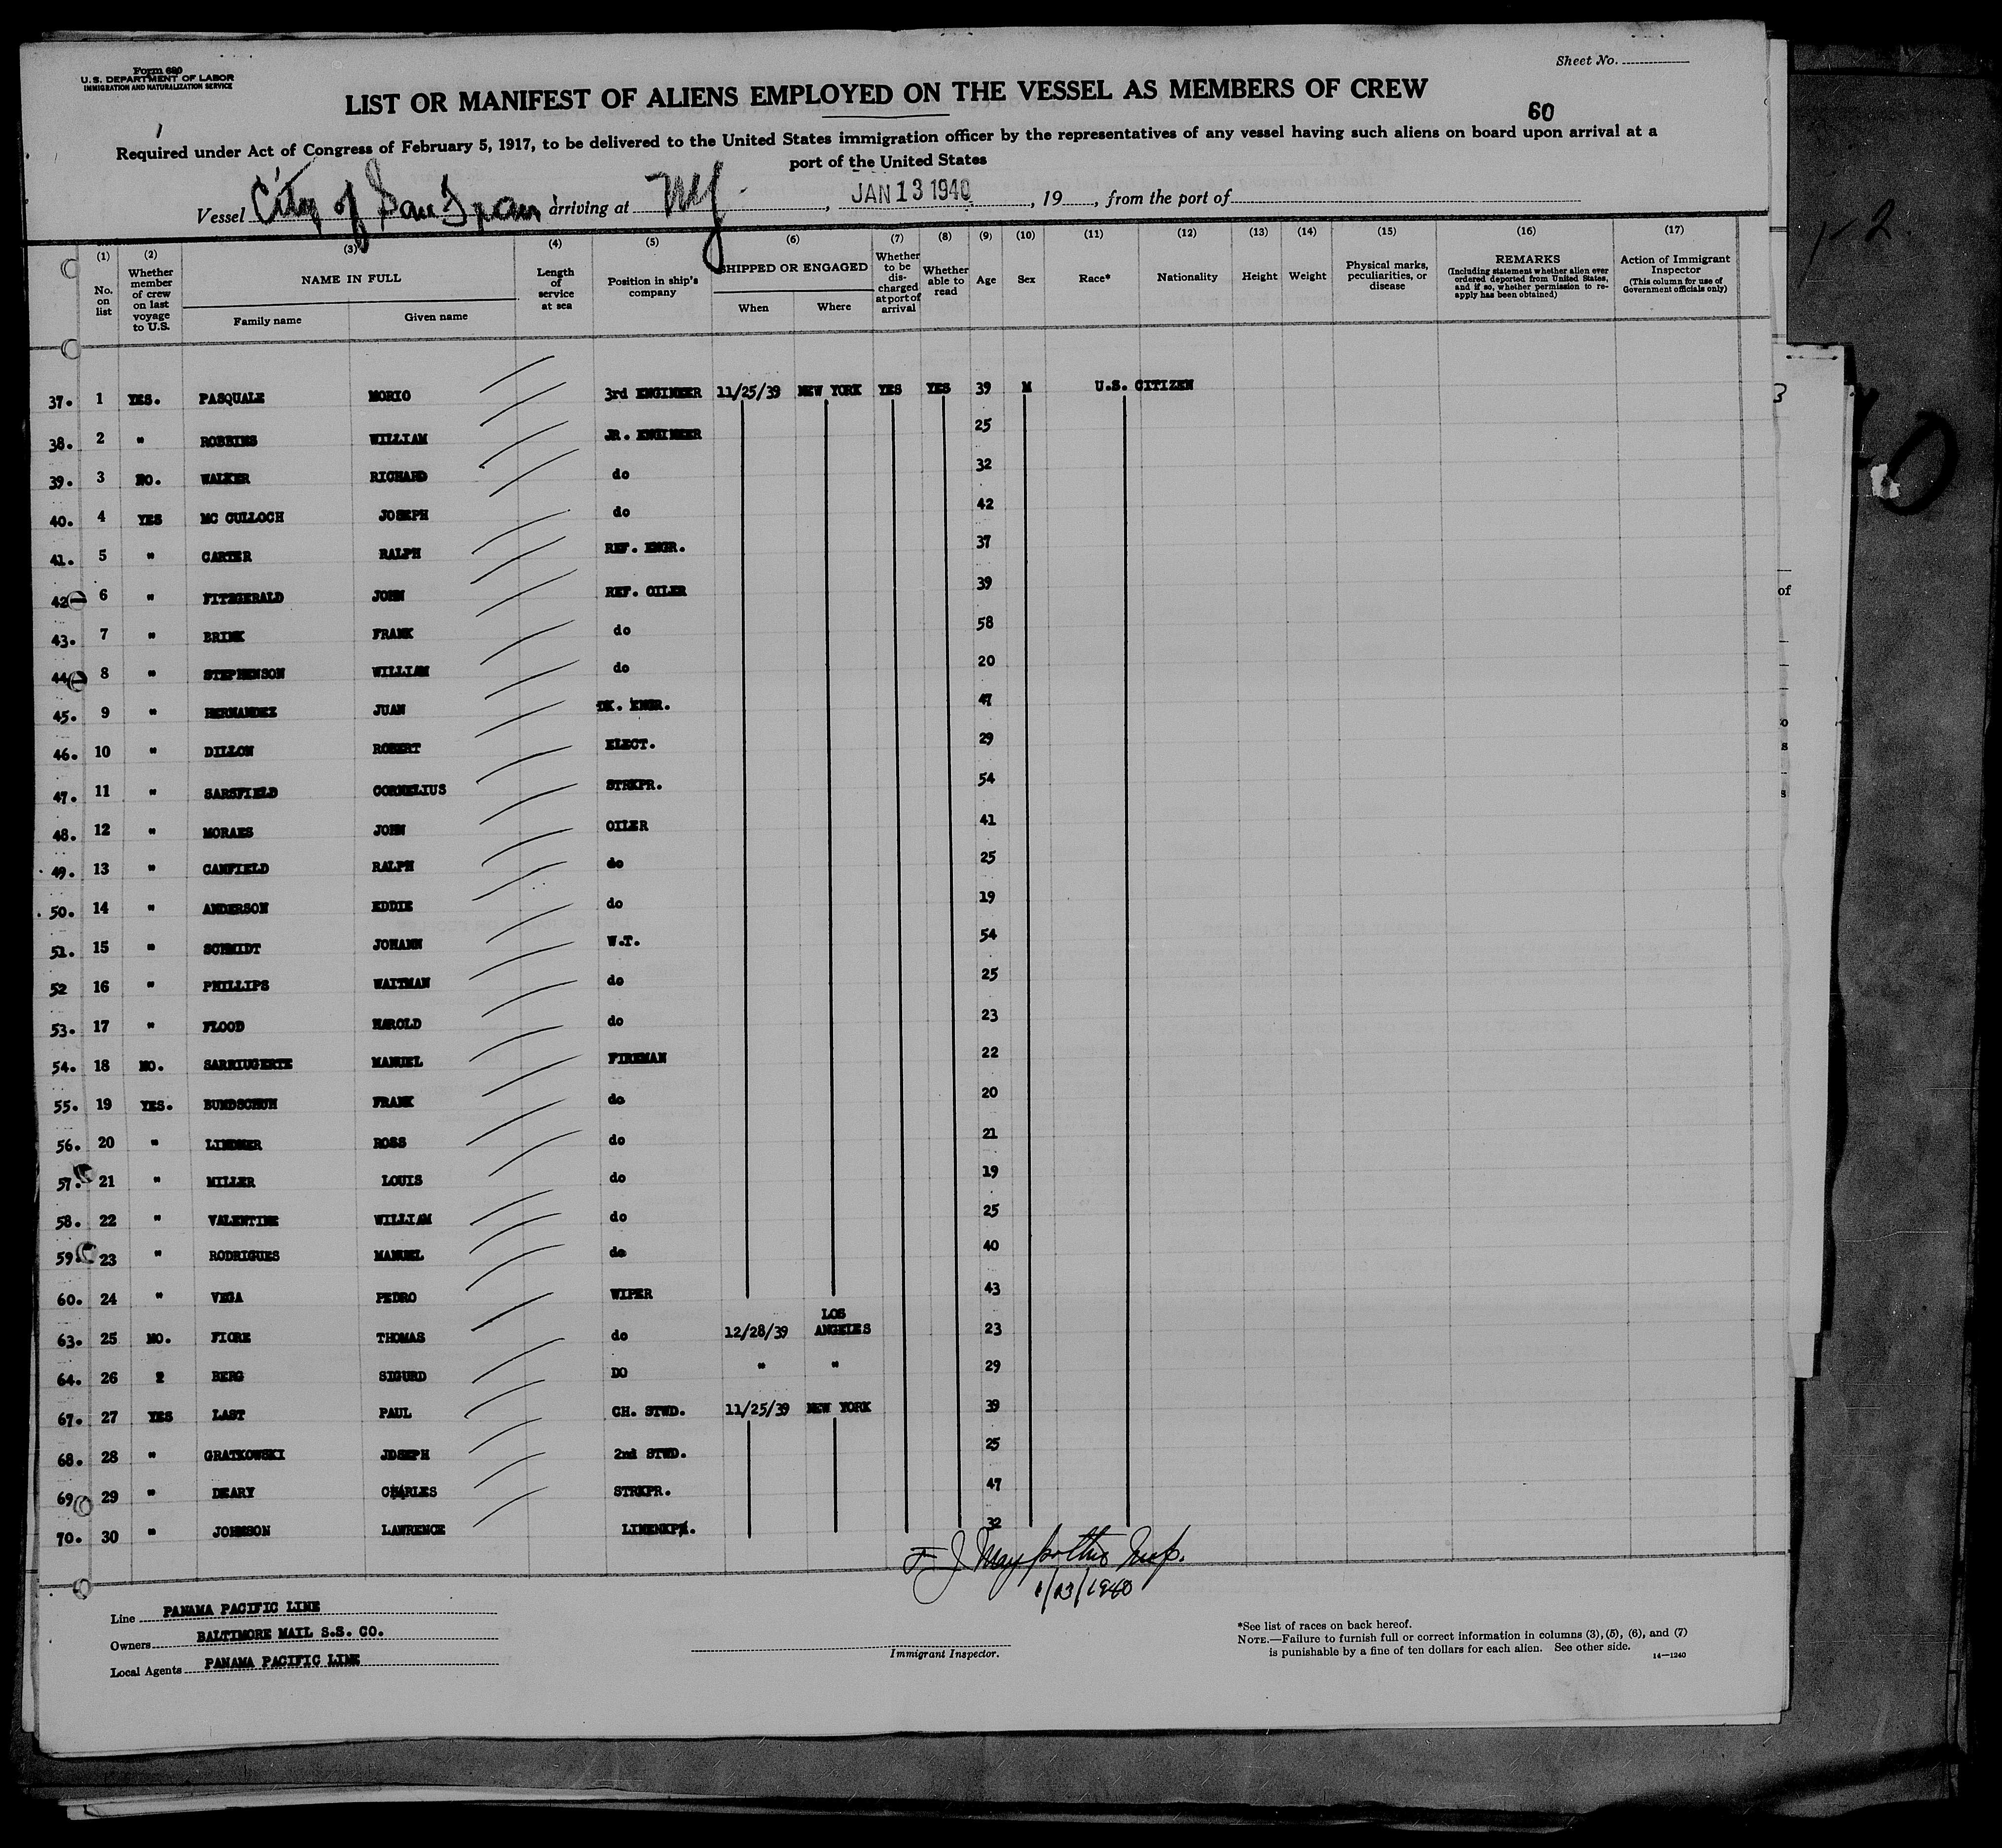 Form 680
U.S. DEPARTMENT OF LABOR
IMMIGRATION AND NATURALIZATION SERVICE
Sheet No.
LIST OR MANIFEST OF ALIENS EMPLOYED ON THE VESSEL AS MEMBERS OF CREW
60
Required under Act of Congress of February 5, 1917, to be delivered to the United States immigration officer by the representatives of any vessel having such aliens on board upon arrival at a
port of the United States
Vessel City of San Fran arriving at NY, JAN 13 1940, 19, from the port of
(1) (2) (3) (4) (5) (6) (7) (8) (9) (10) (11) (12) (13) (14) (15) (16) (17)
No. on list Whether member of crew on last voyage to U.S. NAME IN FULL Family name Given name Length of service at sea Position in ship's company SHIPPED OR ENGAGED When Where Whether to be discharged at port of arrival Whether able to read Age Sex Race* Nationality Height Weight Physical marks, peculiarities, or disease REMARKS (Including statement whether alien ever ordered deported from United States, and if so, whether permission to re-apply has been obtained) Action of Immigrant Inspector (This column for use of Government officials only)
37. 1 YES. PASQUALE MORIO 3rd ENGINEER 11/25/39 NEW YORK YES YES 39 M U.S. CITIZEN
38. 2 " ROBBINS WILLIAM JR. ENGINEER 25
39. 3 NO. WALKER RICHARD do 32
40. 4 YES MC CULLOCH JOSEPH do 42
41. 5 " CARTER RALPH REF. ENGR. 37
42 6 " FITZGERALD JOHN REF. OILER 39
43. 7 " BRINK FRANK do 58
44 8 " STEPHENSON WILLIAM do 20
45. 9 " HERNANDEZ JUAN DK. ENGR. 47
46. 10 " DILLON ROBERT ELECT. 29
47. 11 " SARSFIELD CORNELIUS STRKPR. 54
48. 12 " MORAES JOHN OILER 41
49. 13 " CANFIELD RALPH do 25
50. 14 " ANDERSON EDDIE do 19
51. 15 " SCHMIDT JOHANN W.T. 54
52 16 " PHILLIPS WAITMAN do 25
53. 17 " FLOOD HAROLD do 23
54. 18 NO. SARRIUGERTE MANUEL FIREMAN 22
55. 19 YES. BUNDSCHUH FRANK do 20
56. 20 " LINDNER ROSS do 21
57. 21 " MILLER LOUIS do 19
58. 22 " VALENTINE WILLIAM do 25
59. 23 " RODRIGUES MANUEL do 40
60. 24 " VEGA PEDRO WIPER 43
63. 25 NO. FIORE THOMAS do 12/28/39 LOS ANGELES 23
64. 26 BERG SIGURD DO " " 29
67. 27 YES LAST PAUL CH. STWD. 11/25/39 NEW YORK 39
68. 28 " GRATKOWSKI JOSEPH 2nd STWD. 25
69 29 " DEARY CHARLES STRKPR. 47
70. 30 " JOHNSON LAWRENCE LINENKPR. 32
Line PANAMA PACIFIC LINE
Owners BALTIMORE MAIL S.S. CO.
Local Agents PANAMA PACIFIC LINE
Immigrant Inspector.
*See list of races on back hereof.
NOTE.—Failure to furnish full or correct information in columns (3), (5), (6), and (7)
is punishable by a fine of ten dollars for each alien. See other side.
14—1240